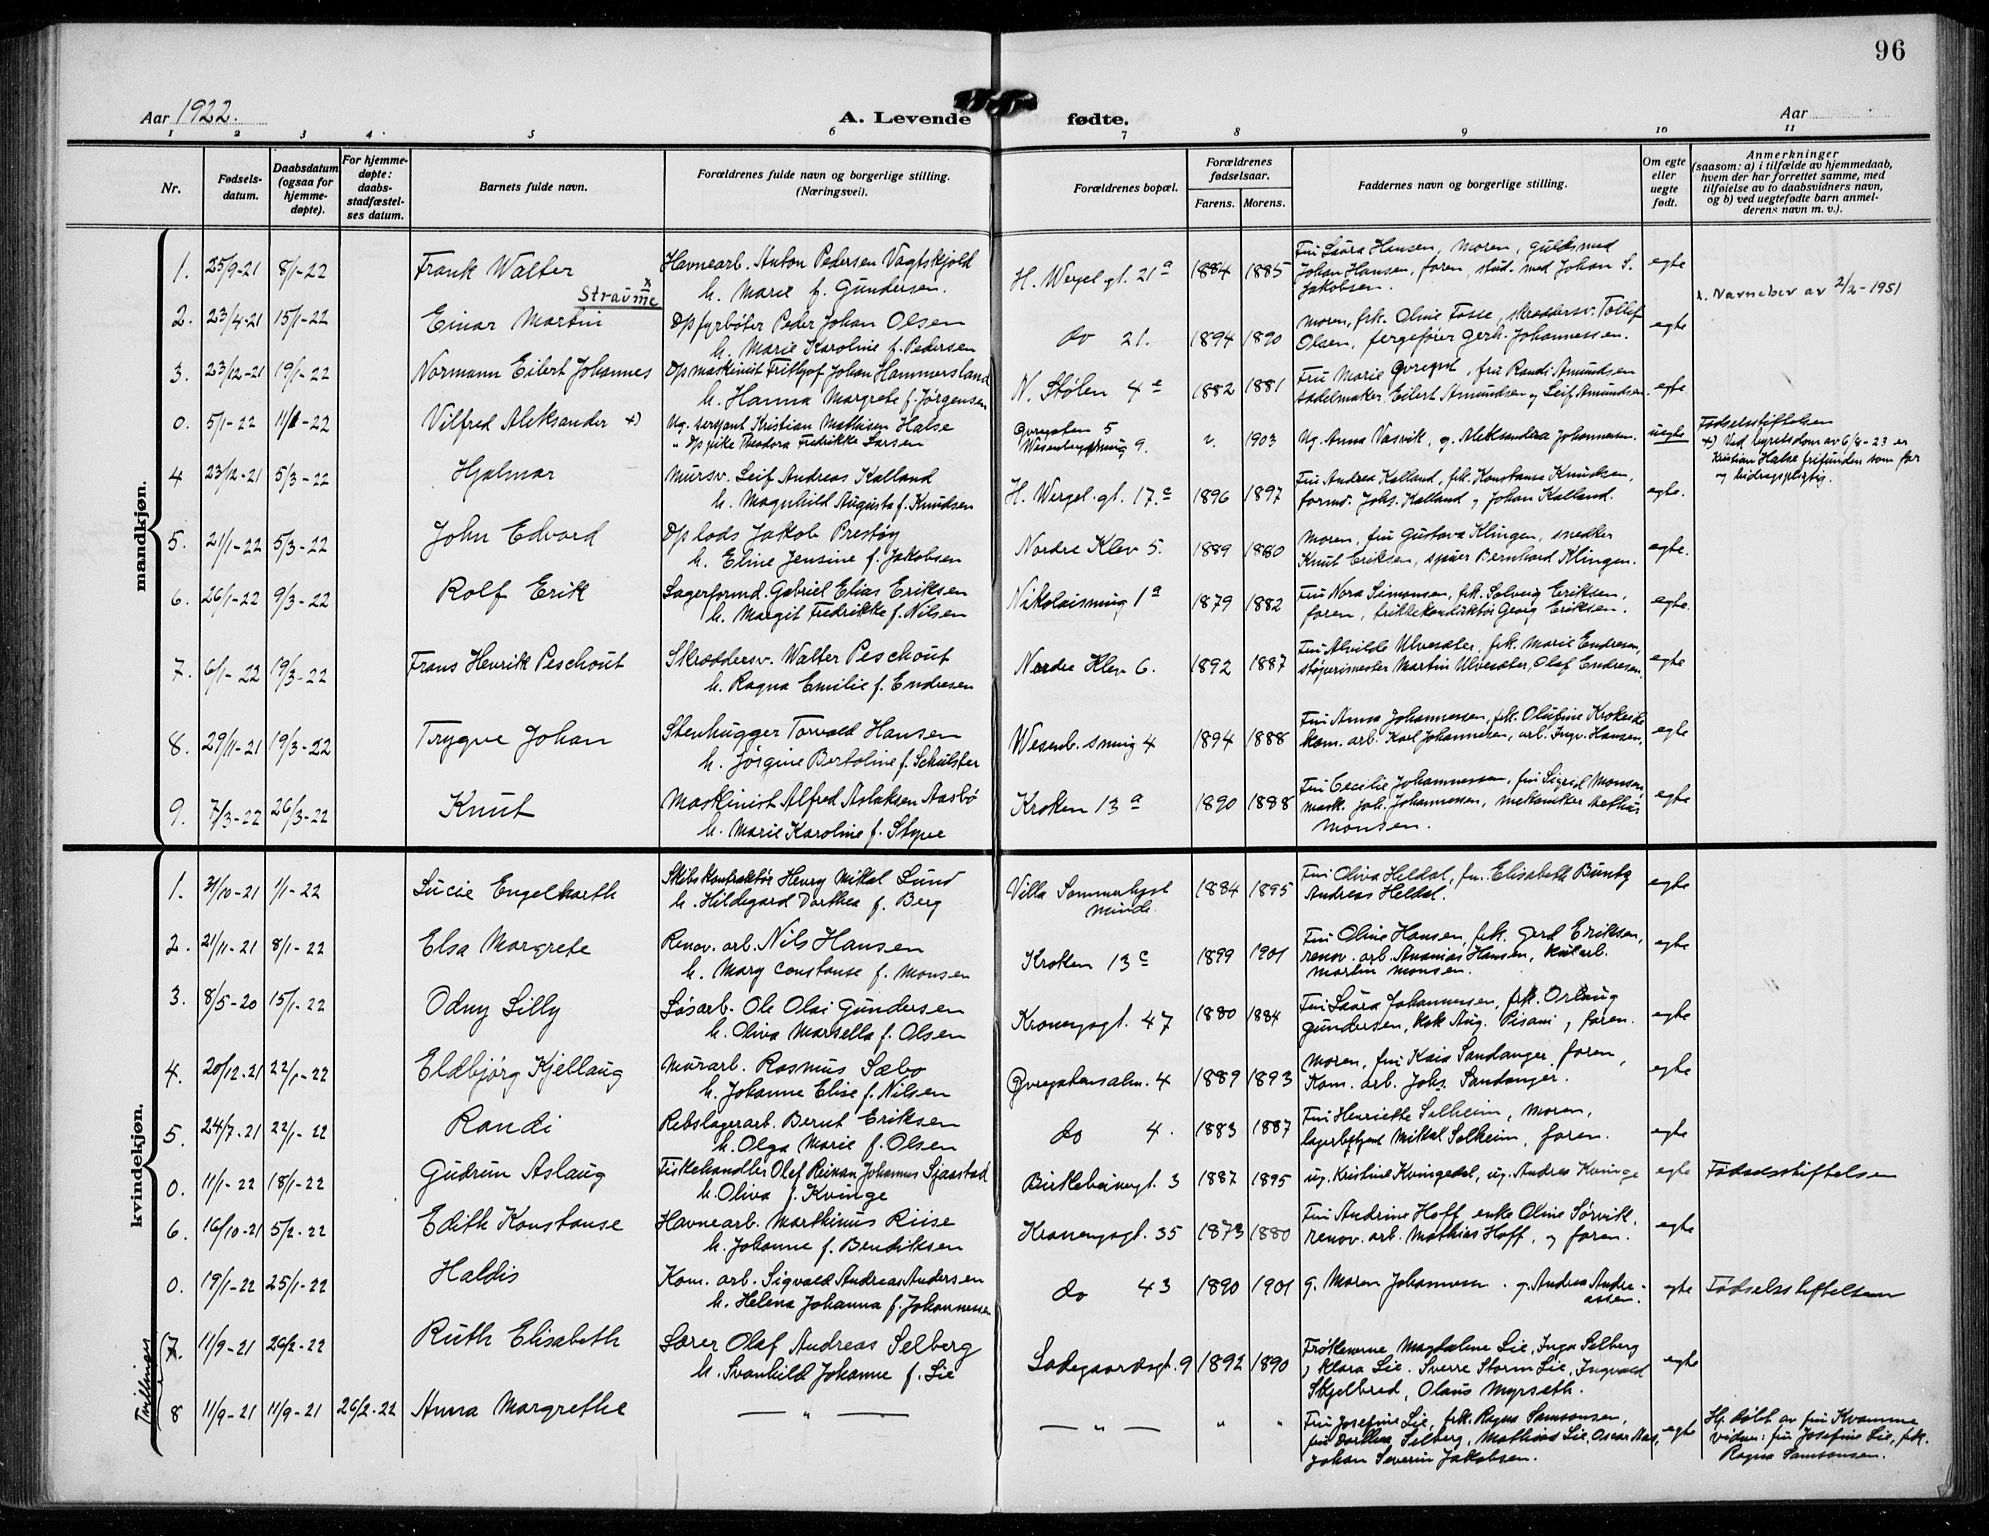 96
Aar 1922.
A. Levende fødte.
Aar
1 2 3 4 5 6 7 8 9 10 11
Nr.
Fødsels-
datum.
Daabsdatum
(ogsaa for
hjemme-
døpte).
For hjemme-
døpte:
daabs-
stadfæstel-
ses datum.
Barnets fulde navn.
Forældrenes fulde navn og borgerlige stilling.
(Næringsvei).
Forældrenes bopæl.
Forældrenes
fødselsaar.
Farens. Morens.
Faddernes navn og borgerlige stilling.
Om egte
eller
uegte
født.
Anmerkninger
(saasom: a) i tilfælde av hjemmedaab,
hvem der har forrettet samme, med
tilføielse av to daabsvidners navn,
og b) ved uegtefødte barn anmel-
derens navn m. v.).
mandkjøn.
1. 25/9-21 8/1-22 Frank Walter Havnearb. Anton Pedersen Vagtskjold H. Wergel. gt. 21a 1884 1885 Fru Laura Hansen, moren, guldsmed egte
h. Marie f. Gundersen. Johan Hansen, faren, stud. med Johan S.
Jakobsen.
Straume x
x. Navnebev av 2/2-1951
2. 23/4-21 15/1-22 Einar Martin Dp fyrbøter Peder Johan Olsen do 21. 1894 1890 Moren, frk. Oline Fosse, skræddersv. Tollef egte
h. Marie Karoline f. Pedersen Olsen, fergefører Gerh. Johannessen.
3. 23/12-21 19/1-22 Normann Eilert Johannes Dp maskinist Frithjof Johan Hammersland N. Stølen 4e 1882 1881 Fru Marie, fru Randi Amundsen egte
h. Hanna Margrete f. Jørgensen sadelmaker Eilert Amundsen og Leif Amundsen.
0. 5/1-22 11/1-22 Vilfred Aleksander +) Ug. sersjant Kristian Mathisen Halse Øvregaten 5
" Dp pike Theodora Fredrikke Larsen 9. 1903 Ug. Anna Vasvik, g. Aleksandra Johannesen. uegte Fødselsstiftelsen
+) Ved lagretsdom av 6/8-23 er
Kristian Halse frifunden som far
og bidragspligtig.
4 23/12-21 5/3-22 Hjalmar Mursv. Leif Andreas Kalland H. Wergel. gt. 17.c 1896 1897 Fru Andrea Kalland, frk. Konstanse Knudsen, egte.
h. Magnhild Augusta f. Knudsen formd. Johs. Kalland og Johan Kalland.
5. 21/1-22 5/3-22 John Edvard Dp lods Jakob Prestøy Nordre Klev 5. 1889 1880 Moren, fru Gustava Klingen, snedker egte.
h. Eline Jensine f. Jakobsen Knut Eriksen, Bernhard Klingen.
6. 26/1-22 9/3-22 Rolf Erik Lagerformd. Gabriel Elias Eriksen Nikolaismug 1a 1879 1882 Fru Nora Simonsen, frk. Solveig Eriksen, egte.
h. Margit Fredrikke f. Nilsen faren, trikkekonduktør Georg Eriksen.
7. 6/1-22 19/3-22 Frans Henrik Peschout Skræddersv. Walter Peschout Nordre Klev 6. 1892 1887 Fru Alvilde Ulvesæter, frk. Marie Endresen, egte
h. Ragna Emilie f. Endresen støperimester Martin Ulvesæter, Olaf Endresen.
8. 29/11-21 19/3-22 Trygve Johan Stenhugger Torvald Hansen Wesenb. smug 4 1894 1888 Fru Anna Johannessen, frk. Olufine Krokeide egte
h. Jørgine Bertoline f. Schulster kom. arb. Karl Johannesen, arb. Ingv. Hansen.
9. 7/3-22 26/3-22 Knut Maskinist Alfred Aslaksen Aasbø Kroken 13a 1890 1888 Fru Cecilie Johannessen, fru Sigrid Monsen, egte
h. Marie Karoline f. Styve mask. Johannessen, mekaniker Arthur
Monsen.
kvindekjøn.
1. 31/10-21 1/1-22 Lucie Engelharth Skibskontraktør Henry Mikal Lund Villa Sommerlyst 1884 1895 Fru Oliva Heldal, fru. Elisabeth Buntz egte
h. Hildegard Dorthea f. Berg Minde. Andreas Heldal.
2. 21/11-21 8/1-22 Elsa Margrete Renov. arb. Nils Hansen Kroken 13c 1899 1901 Fru Oline Hansen, frk. Gerd Eriksen, egte
h. Mary Constanse f. Monsen renov. arb. Ananias Hansen, kularb.
Martin Monsen.
3. 8/5-20 15/1-22 Odny Lilly Løsarb. Ole Olai Gundersen Kroneng.gt. 47 1880 1884 Fru Laura Johannessen, frk. Orlaug egte
h. Oliva Marsella f. Olsen Gundersen, kok Aug. Pisani, faren.
4. 20/12-21 22/1-22 Eldbjørg Kjellaug Murarb. Rasmus Sæbø Øvregatensalm. 4 1889 1893 Moren, fru Kaia Sandanger, faren, egte
h. Johanne Elise f. Nilsen Kom. arb. Johs. Sandanger.
5. 24/7-21 22/1-22 Randi Rebslagerarb. Bernt Eriksen do 4. 1883 1887 Fru Henriette Solheim, moren, egte
h. Olga Marie f. Olsen lagerbetjent Mikal Solheim, faren.
0. 11/1-22 18/1-22 Gudrun Aslaug Fiskehandler Olef Reinan Johannes Sjaastad Birkebeinergt. 3 1887 1895 ug. Kristine Kvingedal, ug. Andrea Kvinge egte Fødselsstiftelsen
h. Oliva f. Kvinge
6. 16/10-21 5/2-22 Edith Konstanse Havnearb. Marthinus Riise Kroneng.gt. 35 1873 1880 Fru Andrine Hoff, enke Oline Sørvik, egte
h. Johanne f. Bendiksen renov. arb. Mathias Hoff, og faren.
0. 19/1-22 25/1-22 Haldis Kom. arb. Sigvald Andreas Andersen do 43 1890 1901 g. Maren Johannesen. g. Andrea Andre- egte Fødselsstiftelsen
h. Helena Johanna f. Johannessen assen.
Tvillinger
7. 11/9-21 26/2-22 Ruth Elisabeth Lærer Olaf Andreas Selberg Ladegaardsgt. 9 1892 1890 Frøknerne Magdalene Lie, Inga Selberg egte
h. Svanhild Johanne f. Lie og Klara Lie. Sverre Storm Lie, Ingvald
Skjelbred, Olaus Myrseth.
8 11/9-21 11/9-21 26/2-22 Anna Margrethe — " — — " — " " Fru Josefine Lie, frk. Ragna Samsonsen, egte Hj. døbt av fru Kvamme
fru Dorthea Selberg, Mathias Lie, Oscar Aas, vidner: fru Josefine Lie, frk.
Johan Severin Jakobsen. Ragna Samsonsen.